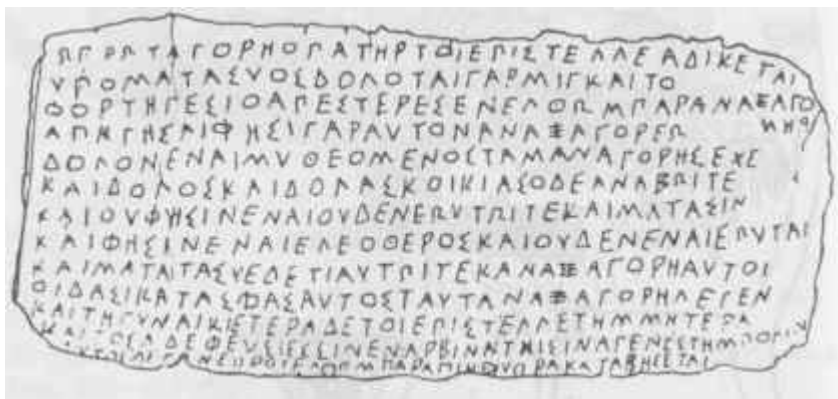 ΩΠΡΩΤΑΓΟΡΗΟΠΑΤΗΡΤΟΙΕΠΙΣΤΕΛΛΕΑΔΙΚΕΤΑΙ
ΥΠΟΜΑΤΑΣΥΟΣΔΟΛΟΤΑΙΓΑΡΜΙΓΚΑΙΤΟ
ΦΟΡΤΗΓΕΣΙΟΑΠΕΣΤΕΡΕΣΕΝΕΛΘΩΜΠΑΡΑΝΑΞΑΓΟΡΗΝ
ΑΠΗΓΗΣΑΙΦΗΣΙΓΑΡΑΥΤΟΝΑΝΑΞΑΓΟΡΕΩ
ΔΟΛΟΝΕΝΑΙΜΥΘΕΟΜΕΝΟΣΤΑΜΑΝΑΓΟΡΗΣΕΧΕ
ΚΑΙΔΟΛΟΣΚΑΙΔΟΛΑΣΚΟΙΚΙΑΣΟΔΕΑΝΑΒΩΙΤΕ
ΚΑΙΟΥΦΗΣΙΝΕΝΑΙΟΥΔΕΝΕΩΥΤΩΙΤΕΚΑΙΜΑΤΑΣΙΝ
ΚΑΙΦΗΣΙΝΕΝΑΙΕΛΕΟΘΕΡΟΣΚΑΙΟΥΔΕΝΕΝΑΙΕΩΥΤΑΙ
ΚΑΙΜΑΤΑΤΑΣΥΕΔΕΤΙΑΥΤΩΙΤΕΚΑΝΑΞΑΓΟΡΗΑΥΤΟΙ
ΟΙΔΑΣΙΚΑΤΑΣΦΑΣΑΥΤΟΣΤΑΥΤΑΝΑΞΑΓΟΡΗΛΕΓΕΝ
ΚΑΙΤΗΓΥΝΑΙΚΙΕΤΕΡΑΔΕΤΟΙΕΠΙΣΤΕΛΛΕΤΗΜΜΗΤΕΡΑ
ΕΣΣΙΝΕΝΑΡΒΙΝΑΤΗΙΣΙΝΑΓΕΝΕΣΤΗΜΠΟΛΙΝ
ΚΑΤΑΒΗΣΕΤΑΙ